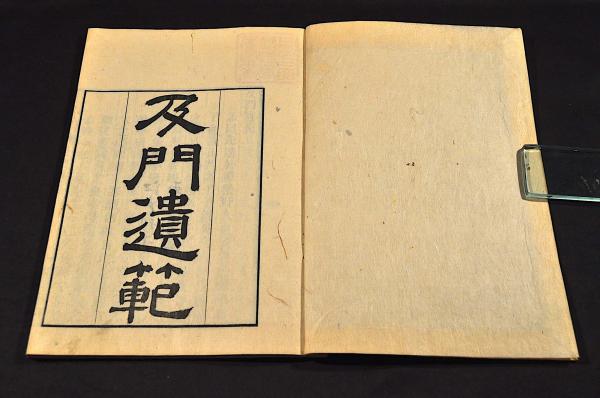 及門遺範